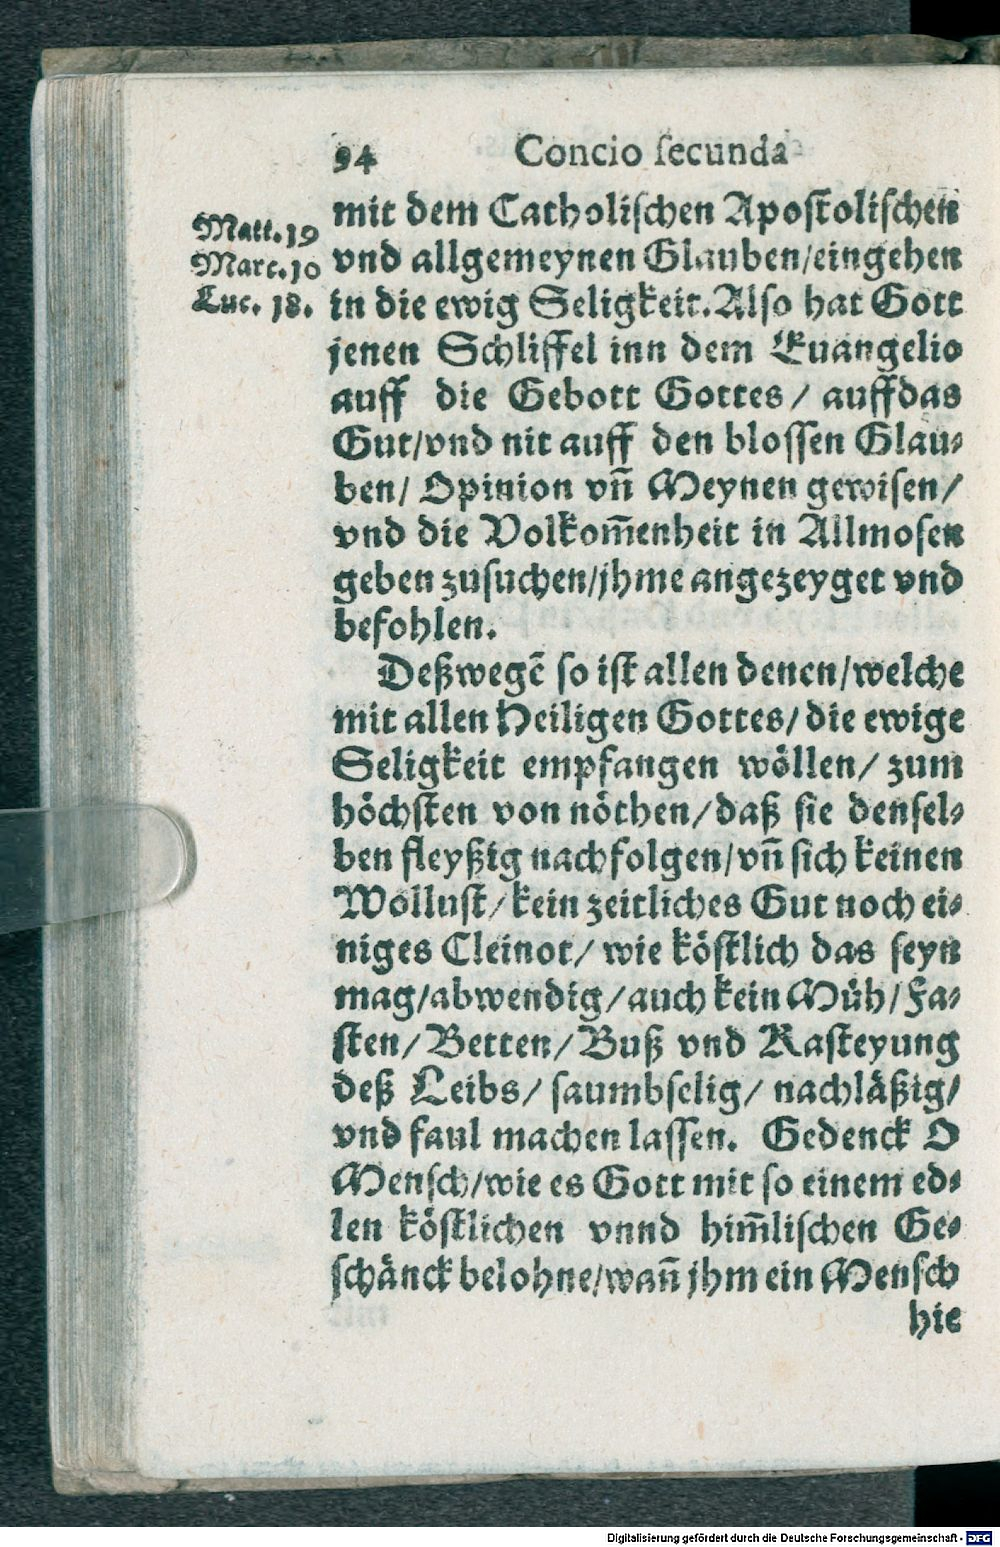 94 Concio secunda
Matt. 19
Marc. 10
Luc. 18.
mit dem Catholischen Apostolischen
vnd allgemeynen Glauben/eingehen
in die ewig Seligkeit. Also hat Gott
jenen Schliffel inn dem Euangelio
auff die Gebott Gottes/ auffdas
Gut/vnd nit auff den blossen Glau-
ben/ Opinion vn̄ Meynen gewisen/
vnd die Volkom̄enheit in Allmosen
geben zusuchen/jhme angezeyget vnd
befohlen.
Deßwegē so ist allen denen/welche
mit allen Heiligen Gottes/die ewige
Seligkeit empfangen wöllen/ zum
höchsten von nöthen/daß sie densel-
ben fleyßig nachfolgen/vn̄ sich keinen
Wollust/kein zeitliches Gut noch ei-
niges Cleinot/ wie köstlich das seyn
mag/abwendig/auch kein Müh/Fa-
sten/Betten/Buß vnd Kasteyung
deß Leibs/ saumbselig/ nachläßig/
vnd faul machen lassen. Gedenck O
Mensch/wie es Gott mit so einem ed-
len köstlichen vnnd him̄lischen Ge-
schänck belohne/wan̄ jhm ein Mensch
hie
Digitalisierung gefördert durch die Deutsche Forschungsgemeinschaft - DFG